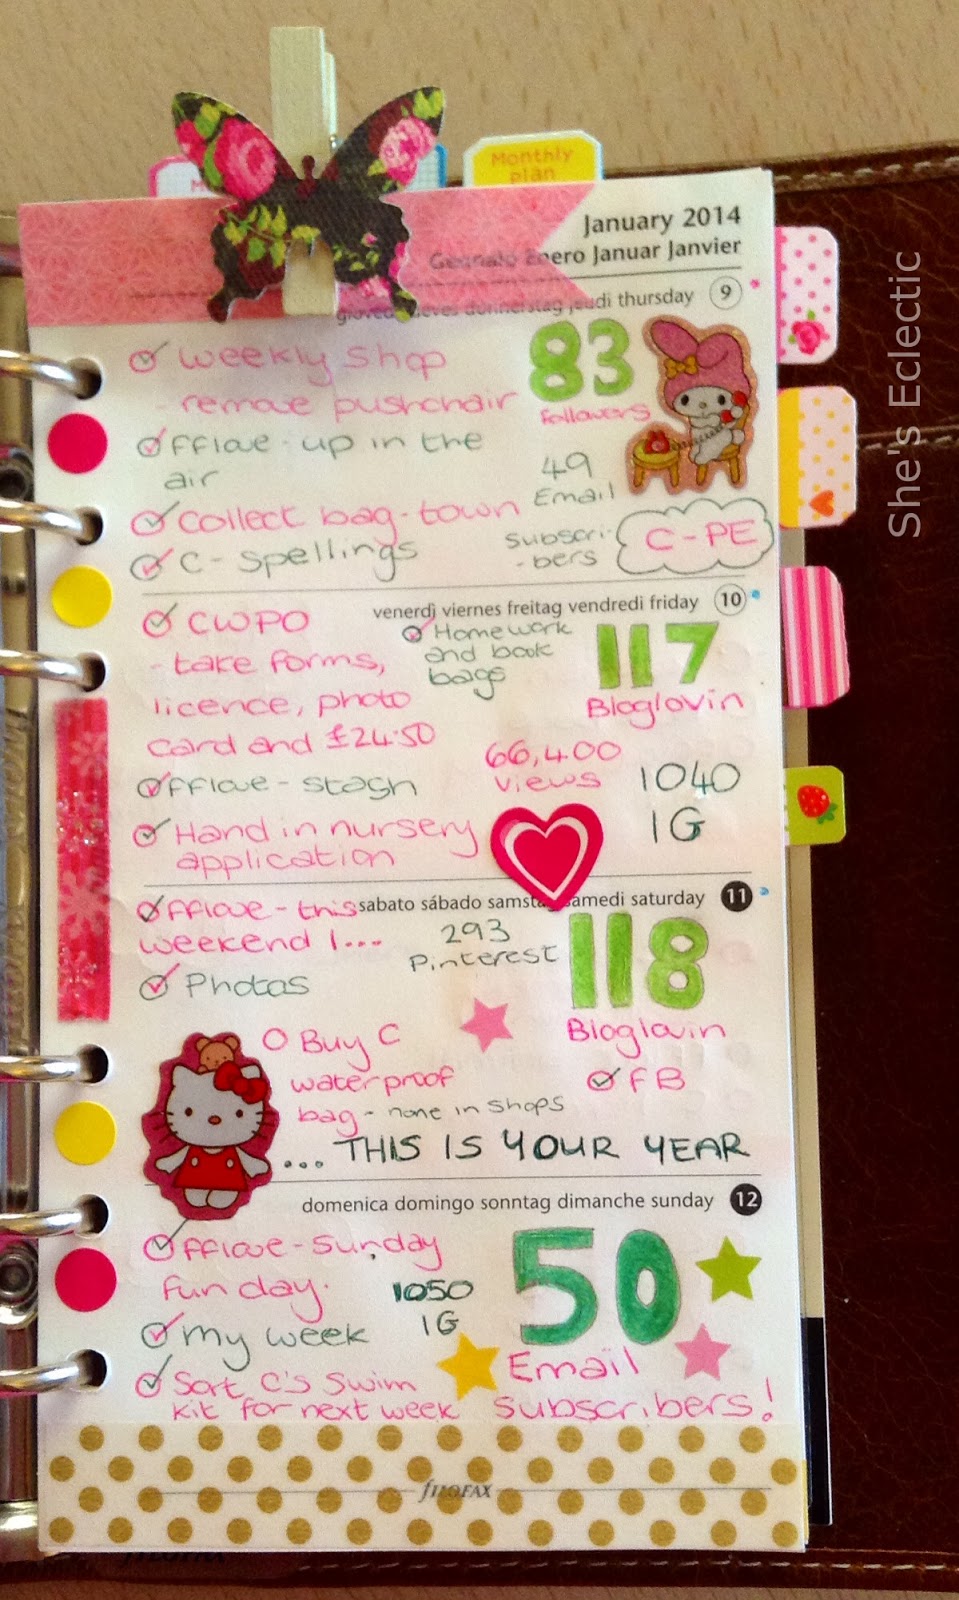 Monthly
plan
January 2014
Gennaio Enero Januar Janvier
jeudi thursday 9
weekly shop
- remove pushchair
83
followers
offlove - up in the
air
49
Email
subscri-
-bers
collect bag - town
C - PE
C - spellings
venerdì viernes freitag vendredi friday 10
CWPO
- take forms,
licence, photo
card and £24.50
Homework
and book
bags
117
Bloglovin
66,400
views
1040
IG
offlove - stash
Hand in nursery
application
sabato sábado samstag samedi saturday 11
offlove - this
weekend I...
293
Pinterest
118
Bloglovin
Photos
Buy C
waterproof
bag - none in shops
FB
... THIS IS YOUR YEAR
domenica domingo sonntag dimanche sunday 12
offlove - Sunday
fun day.
1050
IG
50
Email
subscribers!
my week
Sort C's swim
kit for next week
filofax
She's Eclectic